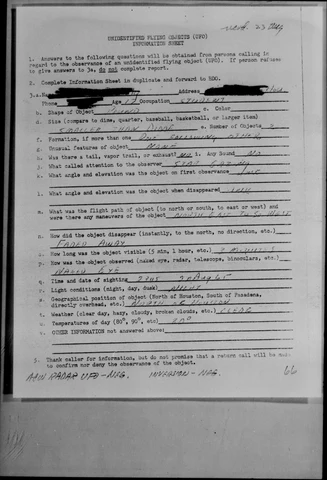 UNIDENTIFIED FLYING OBJECTS (UFO)
INFORMATION SHEET
1. Answers to the following questions will be obtained from persons calling in
regard to the observance of an unidentified flying object (UFO). If person refuses
to give answers to 3a, do not complete report.
2. Complete Information Sheet in duplicate and forward to BDO.
3. a. Address
Phone Age 17 Occupation STUDENT
b. Shape of Object ROUND c. Color
d. Size (compare to dime, quarter, baseball, basketball, or larger item)
SMALLER THAN DIME e. Number of Objects 2
f. Formation, if more than one FOLLOWING OTHER
g. Unusual features of object NONE
h. Was there a tail, vapor trail, or exhaust NO i. Any Sound NO
j. What called attention to the observer STAR GAZING
k. What angle and elevation was the object on first observance
l. What angle and elevation was the object when disappeared
m. What was the flight path of object (to north or south, to east or west) and
were there any maneuvers of the object NORTH EAST TO SO WEST
n. How did the object disappear (instantly, to the north, no direction, etc.)
FADED AWAY
o. How long was the object visible (5 min, 1 hour, etc.) 2 MINUTES
p. How was the object observed (naked eye, radar, telescope, binoculars, etc.)
NAKED EYE
q. Time and date of sighting 2205 20 Aug 65
r. Light conditions (night, day, dusk) NIGHT
s. Geographical position of object (North of Houston, South of Pasadena,
directly overhead, etc.) NORTH OF HOUSTON
t. Weather (clear day, hazy, cloudy, broken clouds, etc.) CLEAR
u. Temperatures of day (60°, 90°, etc) 80°
v. OTHER INFORMATION not answered above
3. Thank caller for information, but do not promise that a return call will be made
to confirm nor deny the observance of the object.
RADAR UFO - NEG. - NEG.
66